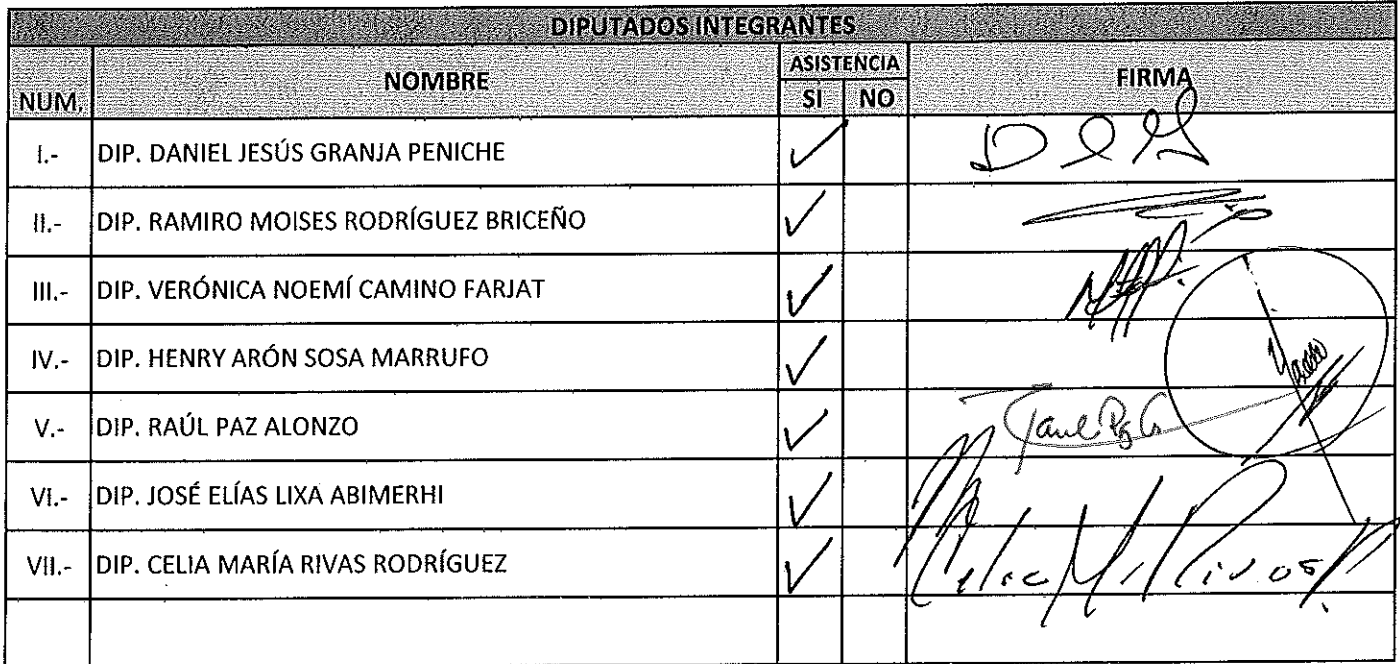 DIPUTADOS INTEGRANTES
NUM. NOMBRE ASISTENCIA FIRMA
SI NO
I.- DIP. DANIEL JESÚS GRANJA PENICHE ✓
II.- DIP. RAMIRO MOISES RODRÍGUEZ BRICEÑO ✓
III.- DIP. VERÓNICA NOEMÍ CAMINO FARJAT ✓
IV.- DIP. HENRY ARÓN SOSA MARRUFO ✓
V.- DIP. RAÚL PAZ ALONZO ✓
VI.- DIP. JOSÉ ELÍAS LIXA ABIMERHI ✓
VII.- DIP. CELIA MARÍA RIVAS RODRÍGUEZ ✓